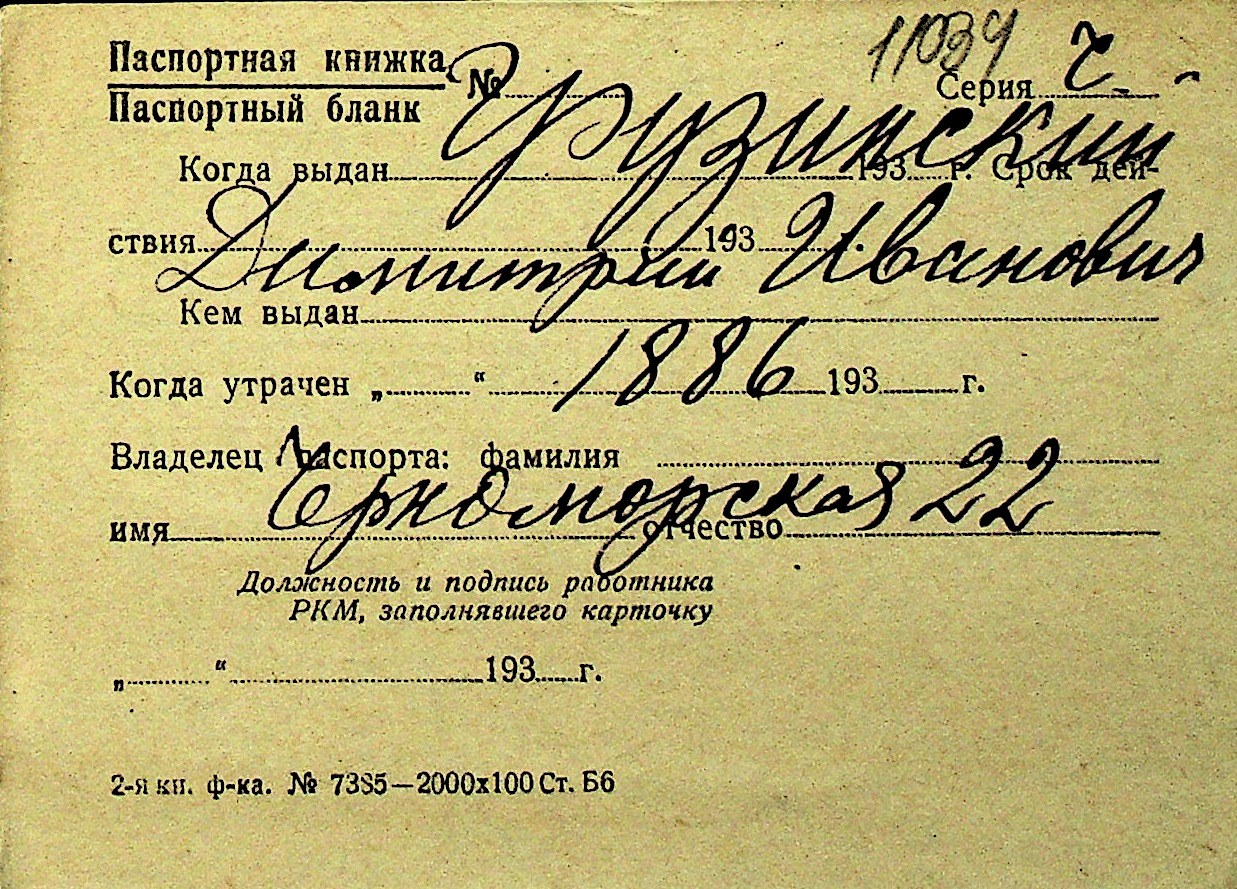 11034
Паспортная книжка
Паспортный бланк
№ Серия
Грузинский
Когда выдан 193 г. Срок дей-
ствия 193 г.
Димитрий Иванович
Кем выдан
Когда утрачен „ “ 193 г.
1886
Владелец паспорта: фамилия
Черноморская 22
имя отчество
Должность и подпись работника
РКМ, заполнявшего карточку
„ “ 193 г.
2-я кн. ф-ка. № 7385—2000х100 Ст. Б6